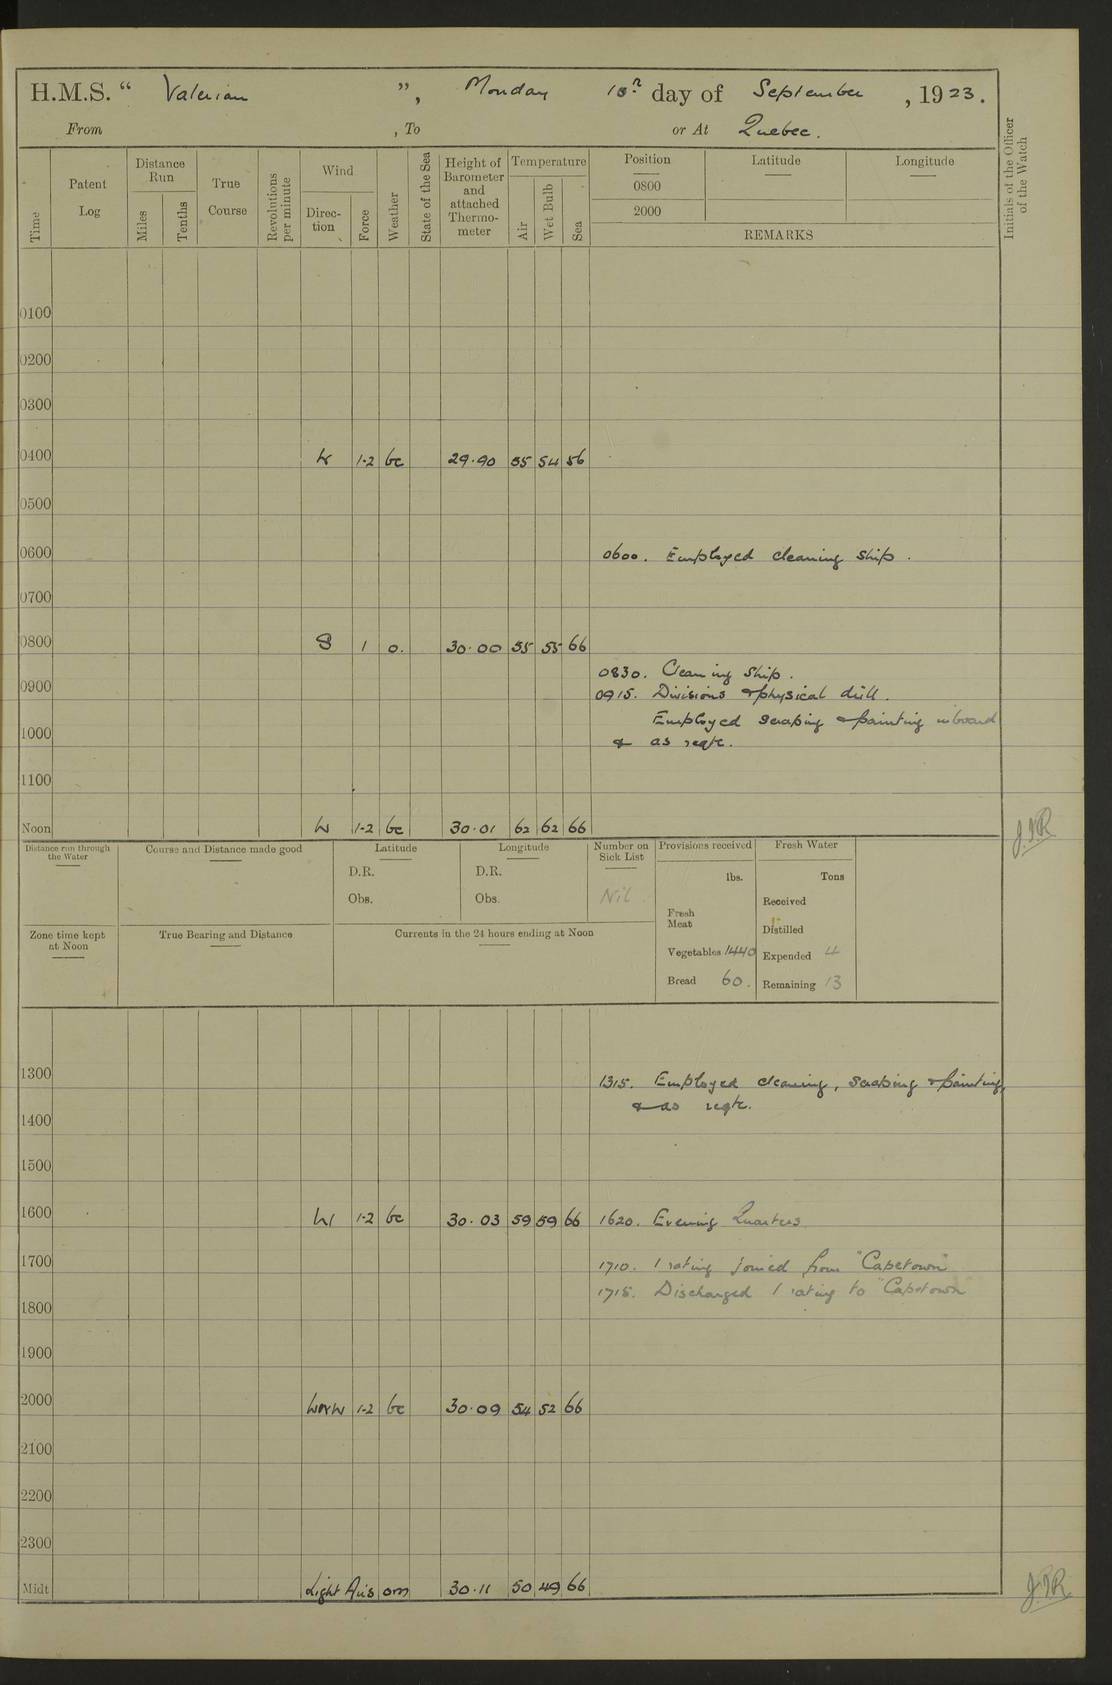 H.M.S. “ Valerian ”, Monday 10th day of September, 1923.
From , To or At Quebec.
Time
Patent Log
Distance Run
Miles
Tenths
True Course
Revolutions per minute
Wind
Direc-tion
Force
Weather
State of the Sea
Height of Barometer and attached Thermo-meter
Temperature
Air
Wet Bulb
Sea
Position
0800
2000
Latitude
Longitude
REMARKS
Initials of the Officer of the Watch
0100
0200
0300
0400 W 1-2 bc 29.90 55 54 56
0500
0600 0600. Employed cleaning ship.
0700
0800 S 1 o. 30.00 55 55 66
0830. Cleaning ship.
0900 0915. Divisions & physical drill.
Employed scraping & painting inboard
1000 & as reqte.
1100
Noon W 1-2 bc 30.01 62 62 66
Distance run through the Water
Course and Distance made good
Latitude
D.R.
Obs.
Longitude
D.R.
Obs.
Number on Sick List
Nil
Provisions received
lbs.
Fresh Meat
Vegetables 1440
Bread 60.
Fresh Water
Tons
Received
Distilled
Expended 4
Remaining 13
Zone time kept at Noon
True Bearing and Distance
Currents in the 24 hours ending at Noon
1300 1315. Employed cleaning, scraping & painting,
& as reqte.
1400
1500
1600 W 1-2 bc 30.03 59 59 66 1620. Evening Quarters
1700 1710. 1 rating joined from "Capetown"
1715. Discharged 1 rating to "Capetown"
1800
1900
2000 WNW 1-2 bc 30.09 54 52 66
2100
2200
2300
Midt Light Airs om 30.11 50 49 66